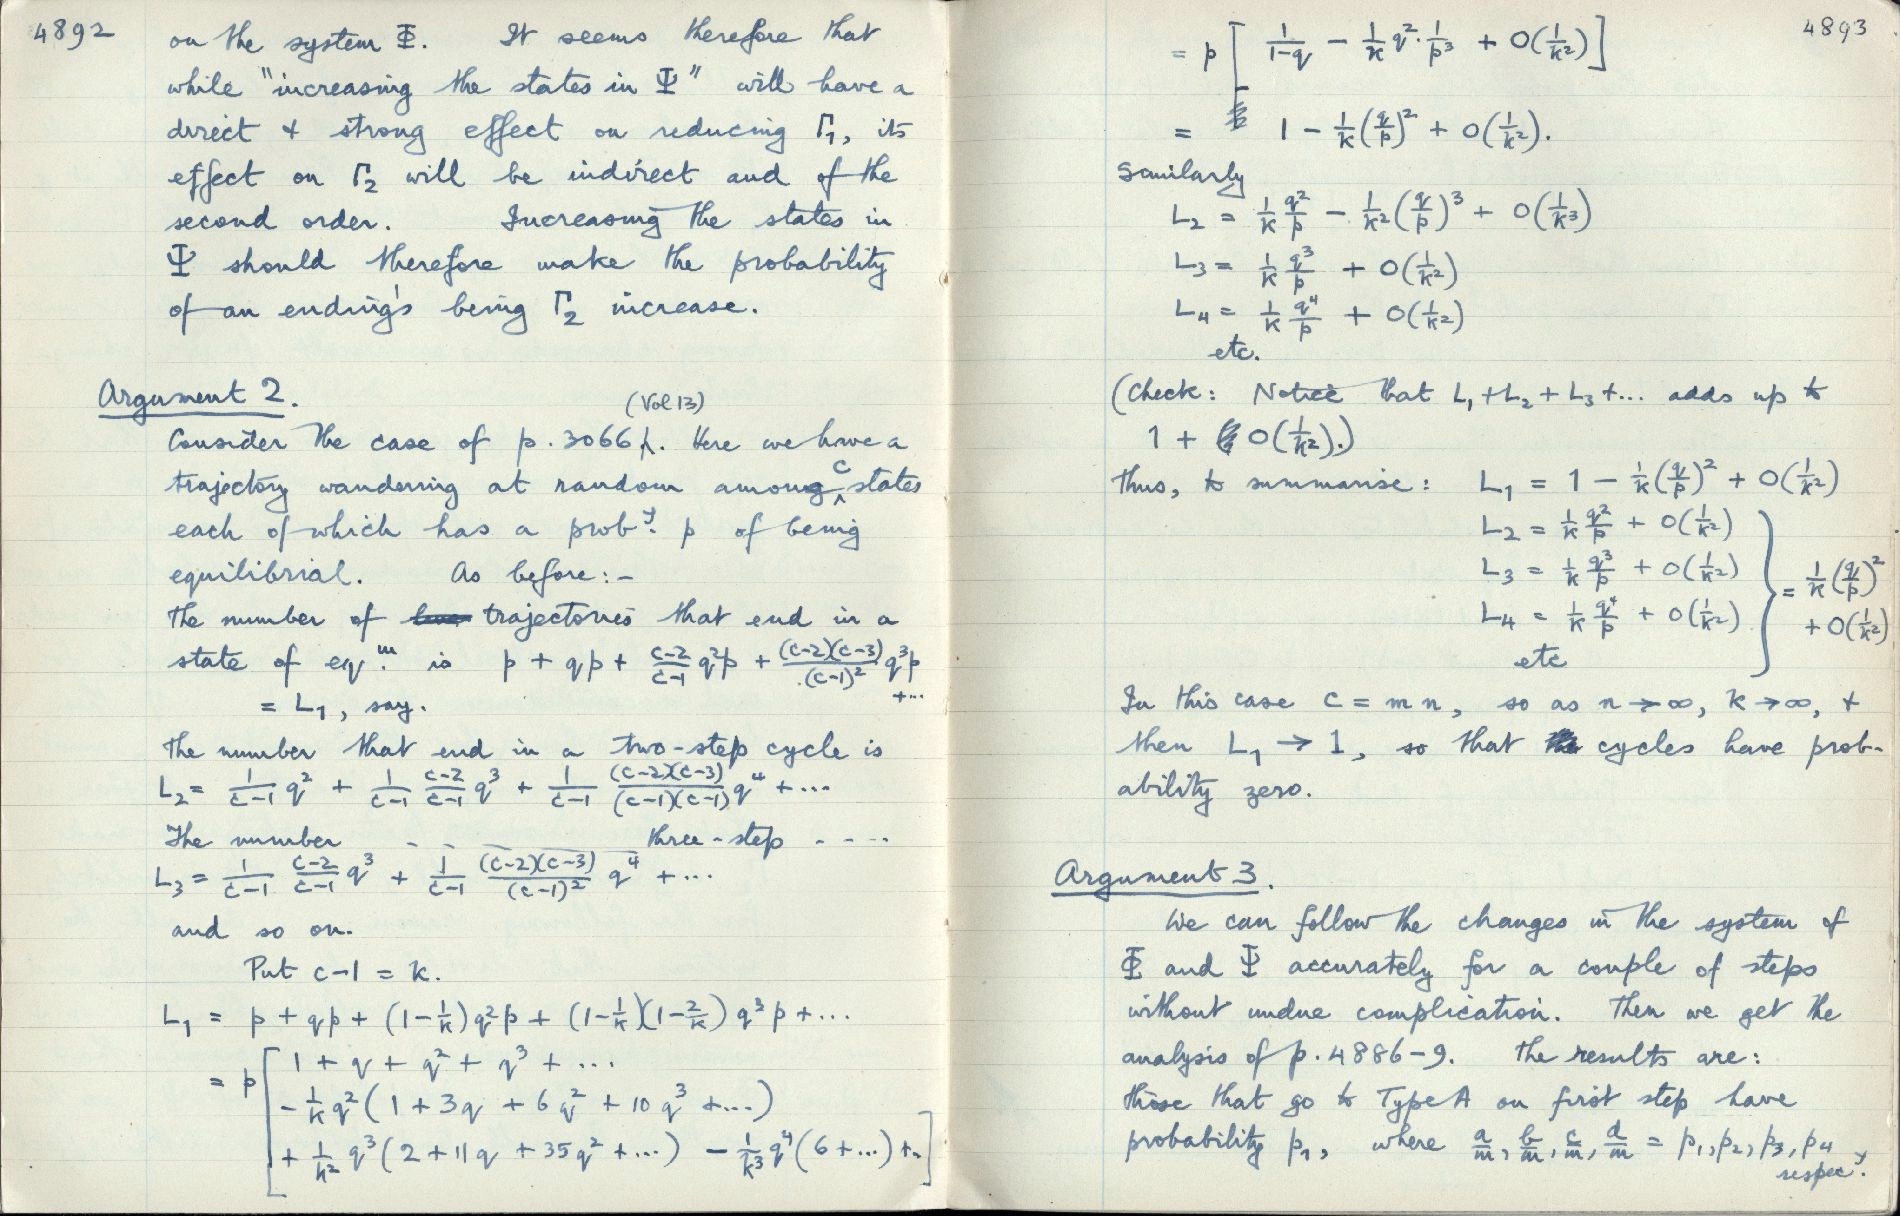 4892
on the system Φ. It seems therefore that
while "increasing the states in Ψ" will have a
direct & strong effect on reducing Γ₁, its
effect on Γ₂ will be indirect and of the
second order. Increasing the states in
Ψ should therefore make the probability
of an ending's being Γ₂ increase.
Argument 2.
(Vol 13)
Consider the case of p. 3066 Here we have a
trajectory wandering at random among c states
each of which has a proby. p of being
equilibrial. As before:-
The number of trajectories that end in a
state of eqm. is p + qp + (c-2)/(c-1) q²p + (c-2)(c-3)/(c-1)² q³p
+...
= L₁, say.
The number that end in a two-step cycle is
L₂ = 1/(c-1) q² + 1/(c-1) (c-2)/(c-1) q³ + 1/(c-1) (c-2)(c-3)/(c-1)(c-1) q⁴ + ...
The number - - - - three-step - - - -
L₃ = 1/(c-1) (c-2)/(c-1) q³ + 1/(c-1) (c-2)(c-3)/(c-1)² q⁴ + ...
and so on.
Put c-1 = k.
L₁ = p + qp + (1-1/k) q²p + (1-1/k)(1-2/k) q³p + ...
= p [ 1 + q + q² + q³ + ...
- 1/k q² (1 + 3q + 6q² + 10q³ + ...)
+ 1/k² q³ (2 + 11q + 35q² + ...) - 1/k³ q⁴ (6 + ...) + .. ]
4893
= p [ 1/(1-q) - 1/k q² · 1/p³ + O(1/k²) ]
= 1 - 1/k (q/p)² + O(1/k²).
Similarly
L₂ = 1/k q²/p - 1/k² (q/p)³ + O(1/k³)
L₃ = 1/k q³/p + O(1/k²)
L₄ = 1/k q⁴/p + O(1/k²)
etc.
(Check: Notice that L₁+L₂+L₃+... adds up to
1 + O(1/k²).)
Thus, to summarise: L₁ = 1 - 1/k (q/p)² + O(1/k²)
L₂ = 1/k q²/p + O(1/k²)
L₃ = 1/k q³/p + O(1/k²)
L₄ = 1/k q⁴/p + O(1/k²)
etc
} = 1/k (q/p)²
+ O(1/k²)
In this case c = mn, so as n → ∞, k → ∞, &
then L₁ → 1, so that cycles have prob-
ability zero.
Argument 3.
We can follow the changes in the system of
Φ and Ψ accurately for a couple of steps
without undue complication. Then we get the
analysis of p. 4886-9. The results are:
those that go to Type A on first step have
probability p₁, where a/m, b/m, c/m, d/m = p₁, p₂, p₃, p₄
respecy.